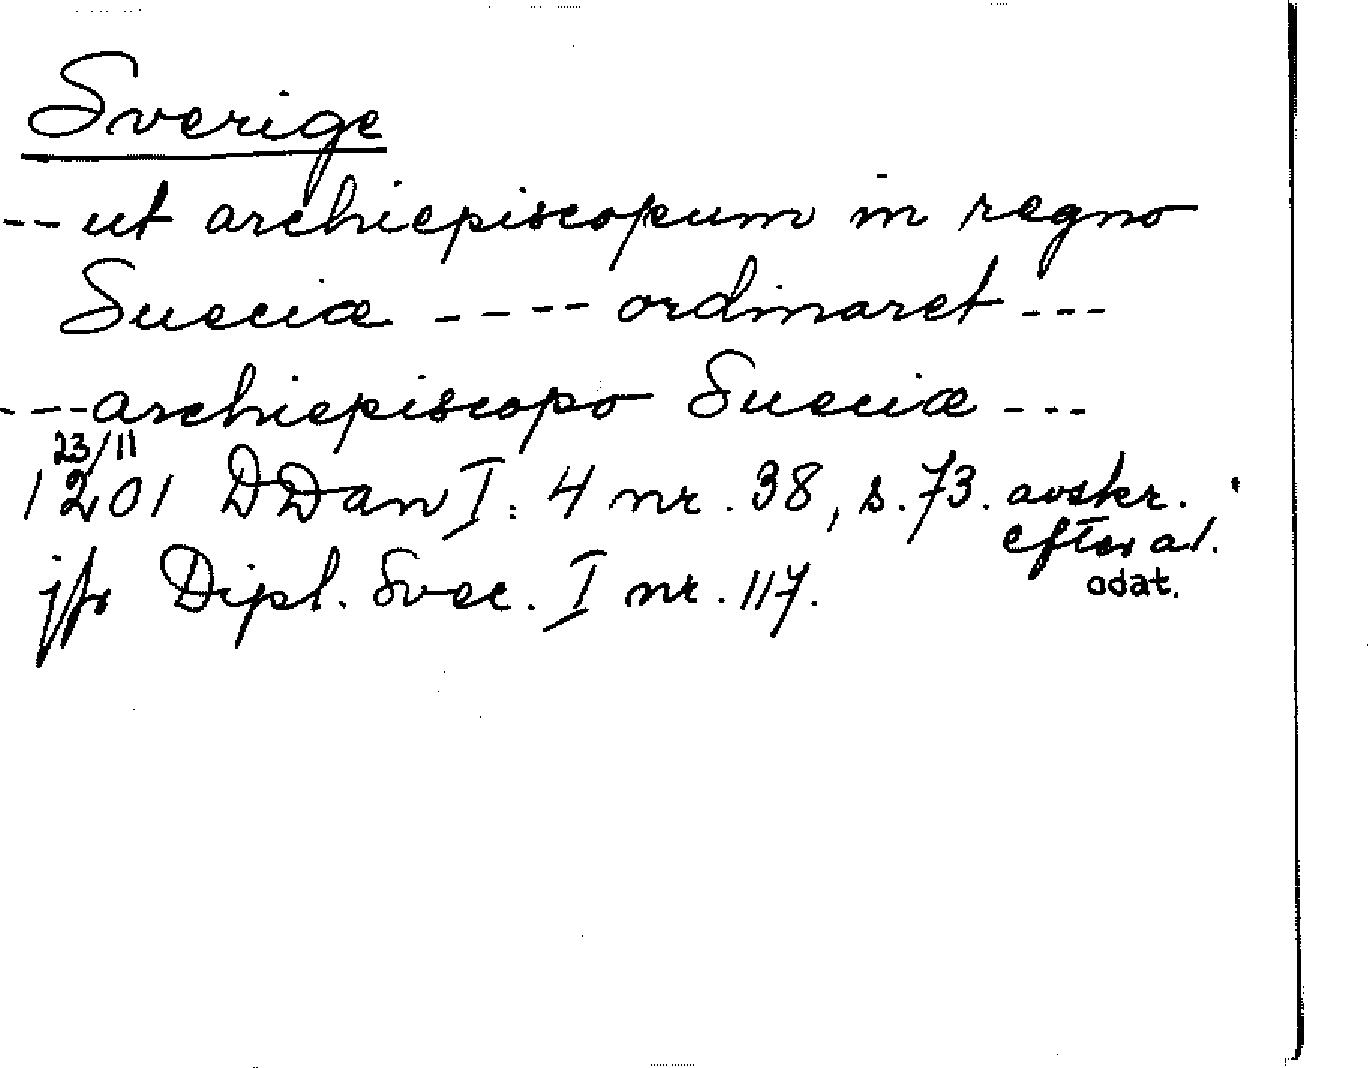 Sverige
-- ut archiepiscopum in regno
Sueciæ ---- ordinaret ---
--- archiepiscopo Sueciæ ---
23/11
1201 DDan I: 4 nr. 38, s. 73. avskr.
efter
odat.
jfr Dipl. Svec. I nr. 117.